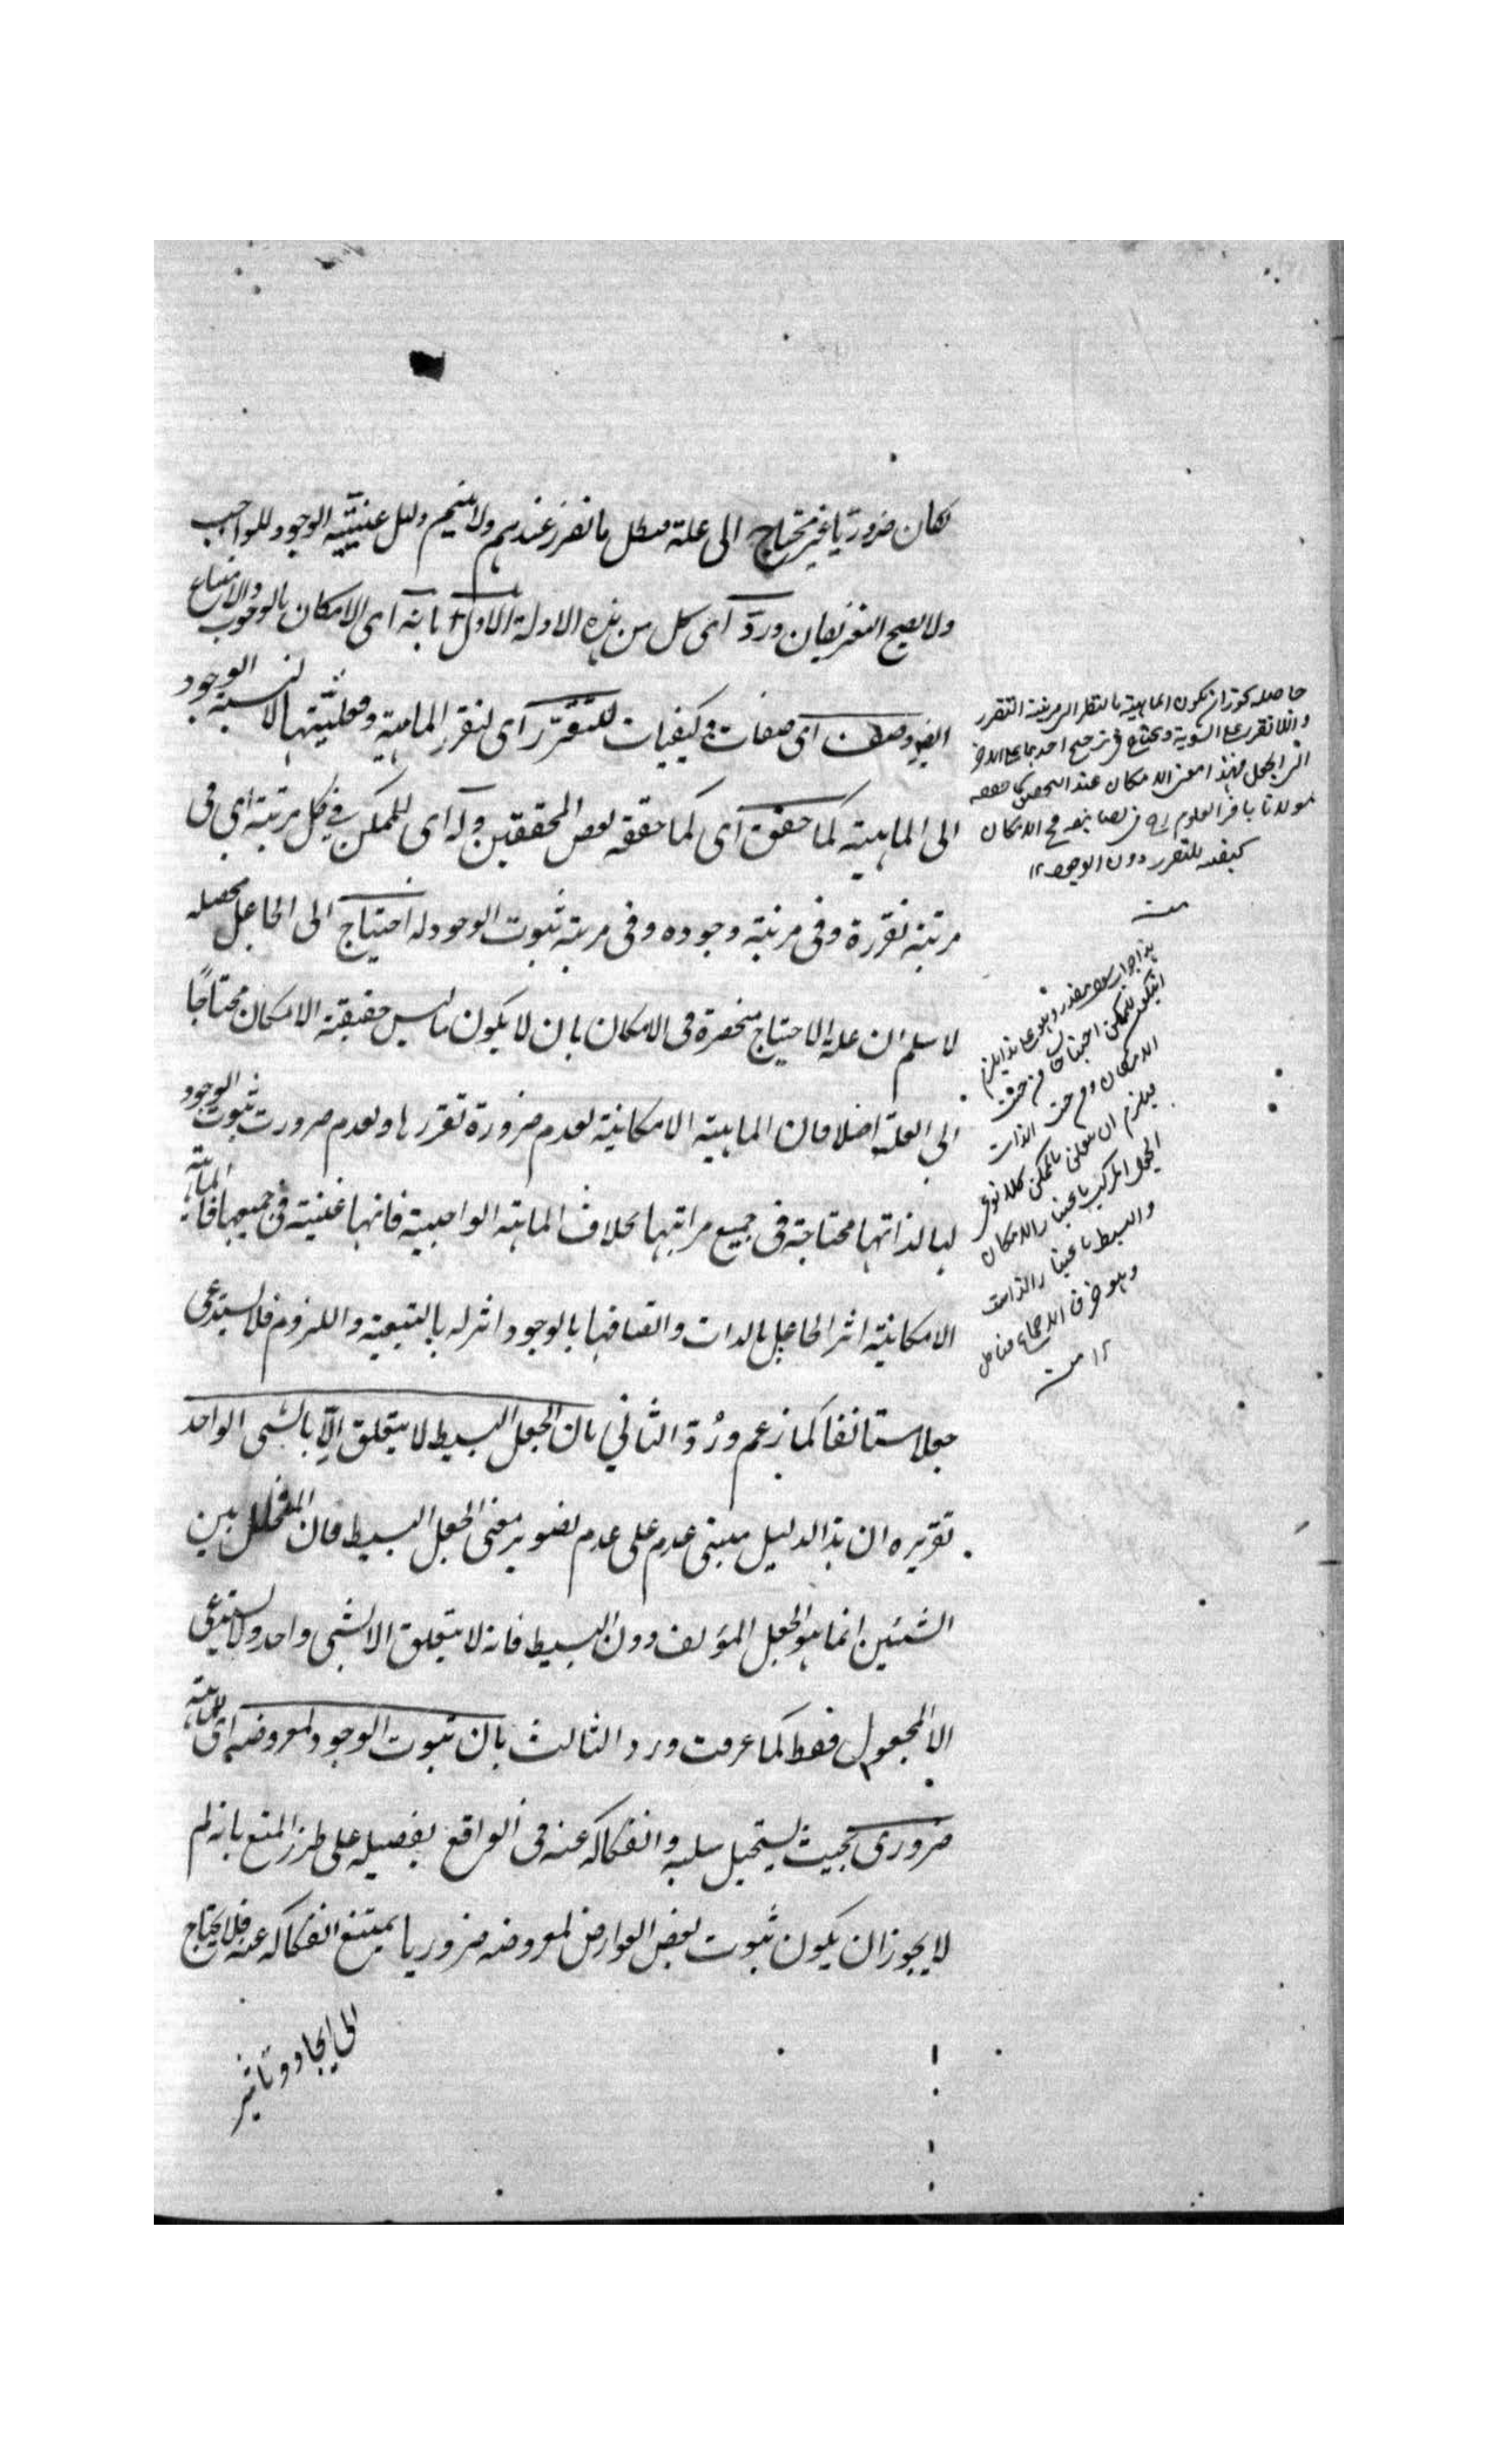 لكان ضروريا غير محتاج الى علة فبطل ما تقرر عندهم ولا يتم دليل عينية الوجود للواجب
ولا يصح التعريفان وردّ اى كل من هذه الادلة الاول بانه اى الامكان بالوجوب والامتناع
ايضا وصف اى صفات وكيفيات للتقرّر اى لتقرر الماهية وفعليتها لا لنسبة الوجود
الى الماهية كما حقق اى كما حققه بعض المحققين وله اى للممكن في كل مرتبة اى فى
مرتبة تقرره وفى مرتبة وجوده وفى مرتبة ثبوت الوجود له احتياج الى الجاعل محصله
لا سلم ان علة الاحتياج منحصرة فى الامكان بان لا يكون ما ليس حقيقة الامكان محتاجًا
الى العلة اصلا فان الماهية الامكانية لعدم ضرورة تقررها ولعدم ضرورت ثبوت الوجود
لها لذاتها محتاجة فى جميع مراتبها بخلاف الماهية الواجبية فانها غنية فى جميعها فالماهية
الامكانية اثر الجاعل بالذات واتصافها بالوجود اثر له بالتبعية واللزوم فلا يستدعى
جعلا مستانفا كما زعم ورُدّ الثاني بان الجعل البسيط لا يتعلق الّا بالشى الواحد
تقريره ان هذا الدليل مبنى عدم على عدم تصوير معنى الجعل البسيط فان المتخلل بين
الشيئين انما هو الجعل المؤلف دون البسيط فانه لا يتعلق الا بشى واحد ولا يستدعى
الا المجعول فقط كما عرفت ورد الثالث بان ثبوت الوجود لمعروضه اى للماهية
ضرورى بحيث يستحيل سلبه وانفكاكه عنه فى الواقع تفصيله على طرز المنع بانه لم
لا يجوز ان يكون ثبوت بعض العوارض لمعروضه ضروريا يمتنع انفكاكه عنه فلا يحتاج
الى ايجاد وتاثير
حاصله يجوز ان يكون الماهية بالنظر الى مرتبة التقرر
واللا تقرر على السوية ويحتاج فى ترجيح احدهما على الاخر
الى الجعل فهذا معنى الامكان عند المحققين كما حققه
مولانا باقر العلوم فى تصانيفه الامكان
كيفية للتقرر دون الوجود ١٢
منه
هذا جواب سوال مقدر وهو على هذا يلزم
ان يكون للممكن احتياجان من جهة
الامكان ومن جهة الذات
فيلزم ان يتعلق بالممكن كلا نوعى
الجعل المركب باعتبار الامكان
والبسيط باعتبار الذات
وهو خرق الاجماع فتامل
١٢ منه